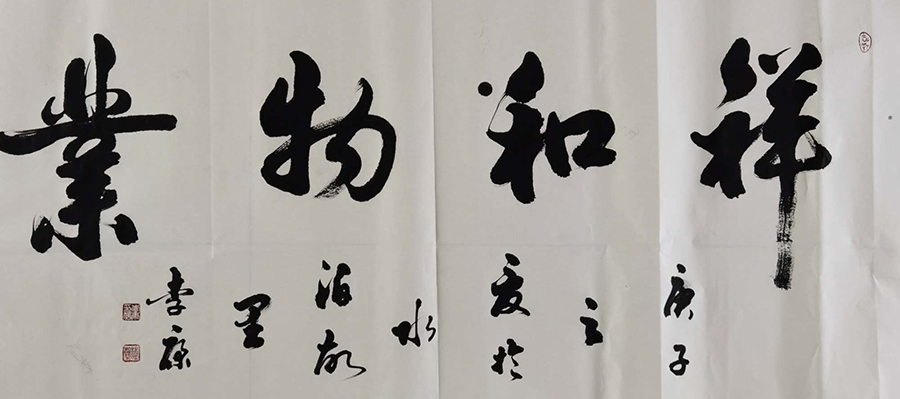 祥和物業
庚子
之
夏於
水
泊故
里
李